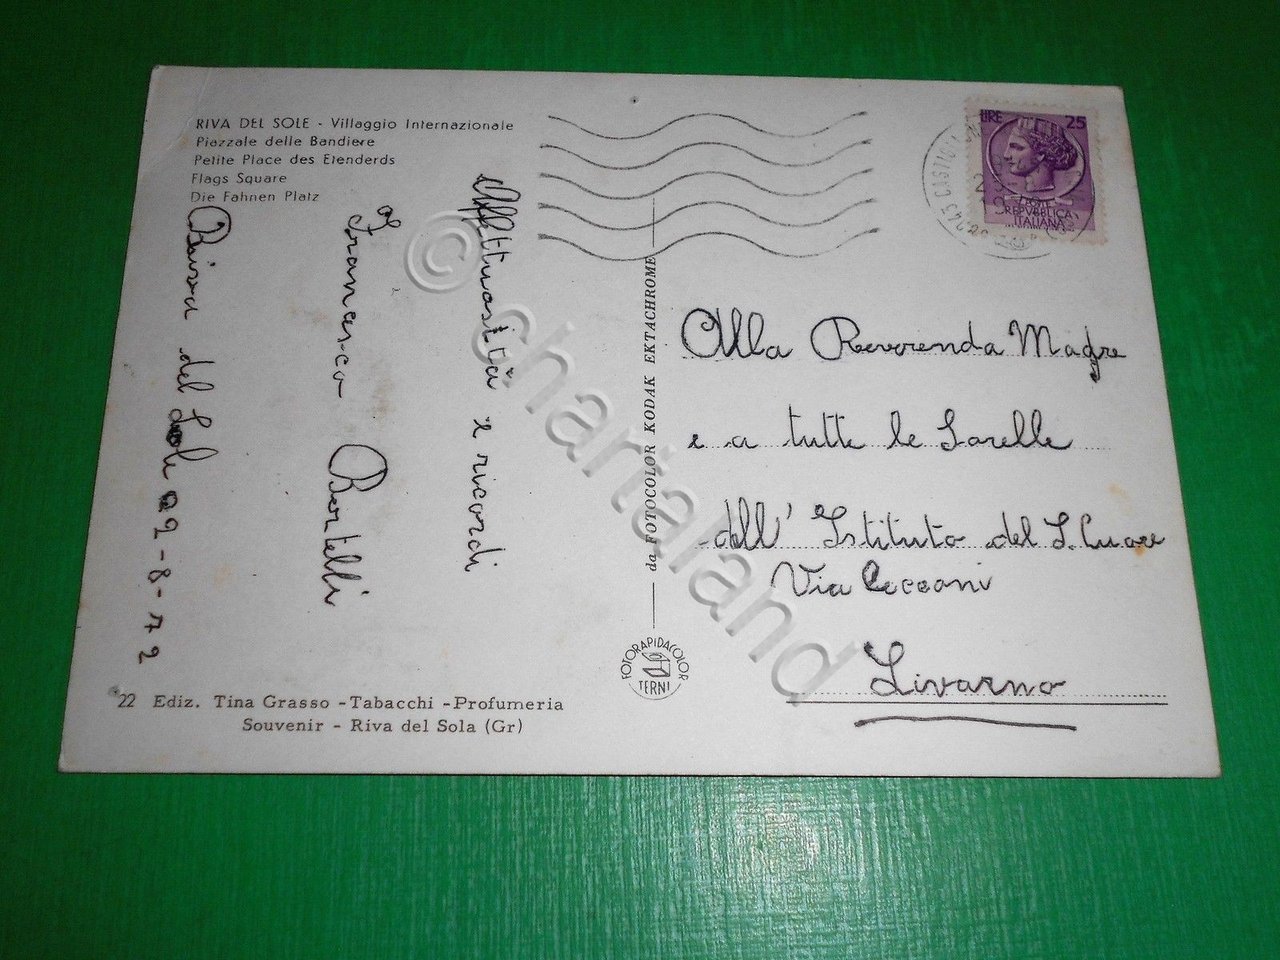 RIVA DEL SOLE - Villaggio Internazionale
Piazzale delle Bandiere
Petite Place des Etenderds
Flags Square
Die Fahnen Platz
Affettuosità e ricordi
Francesco Bertelli
Riva del Sole 22-8-72
22 Ediz. Tina Grasso - Tabacchi - Profumeria
Souvenir - Riva del Sola (Gr)
da FOTOCOLOR KODAK EKTACHROME
FOTORAPIDACOLOR
TERNI
LIRE 25
POSTE
REPVBBLICA
ITALIANA
Alla Reverenda Madre
e a tutte le Sorelle
dell' Istituto del S. Cuore
Via Cecconi
Livorno
© chartaland